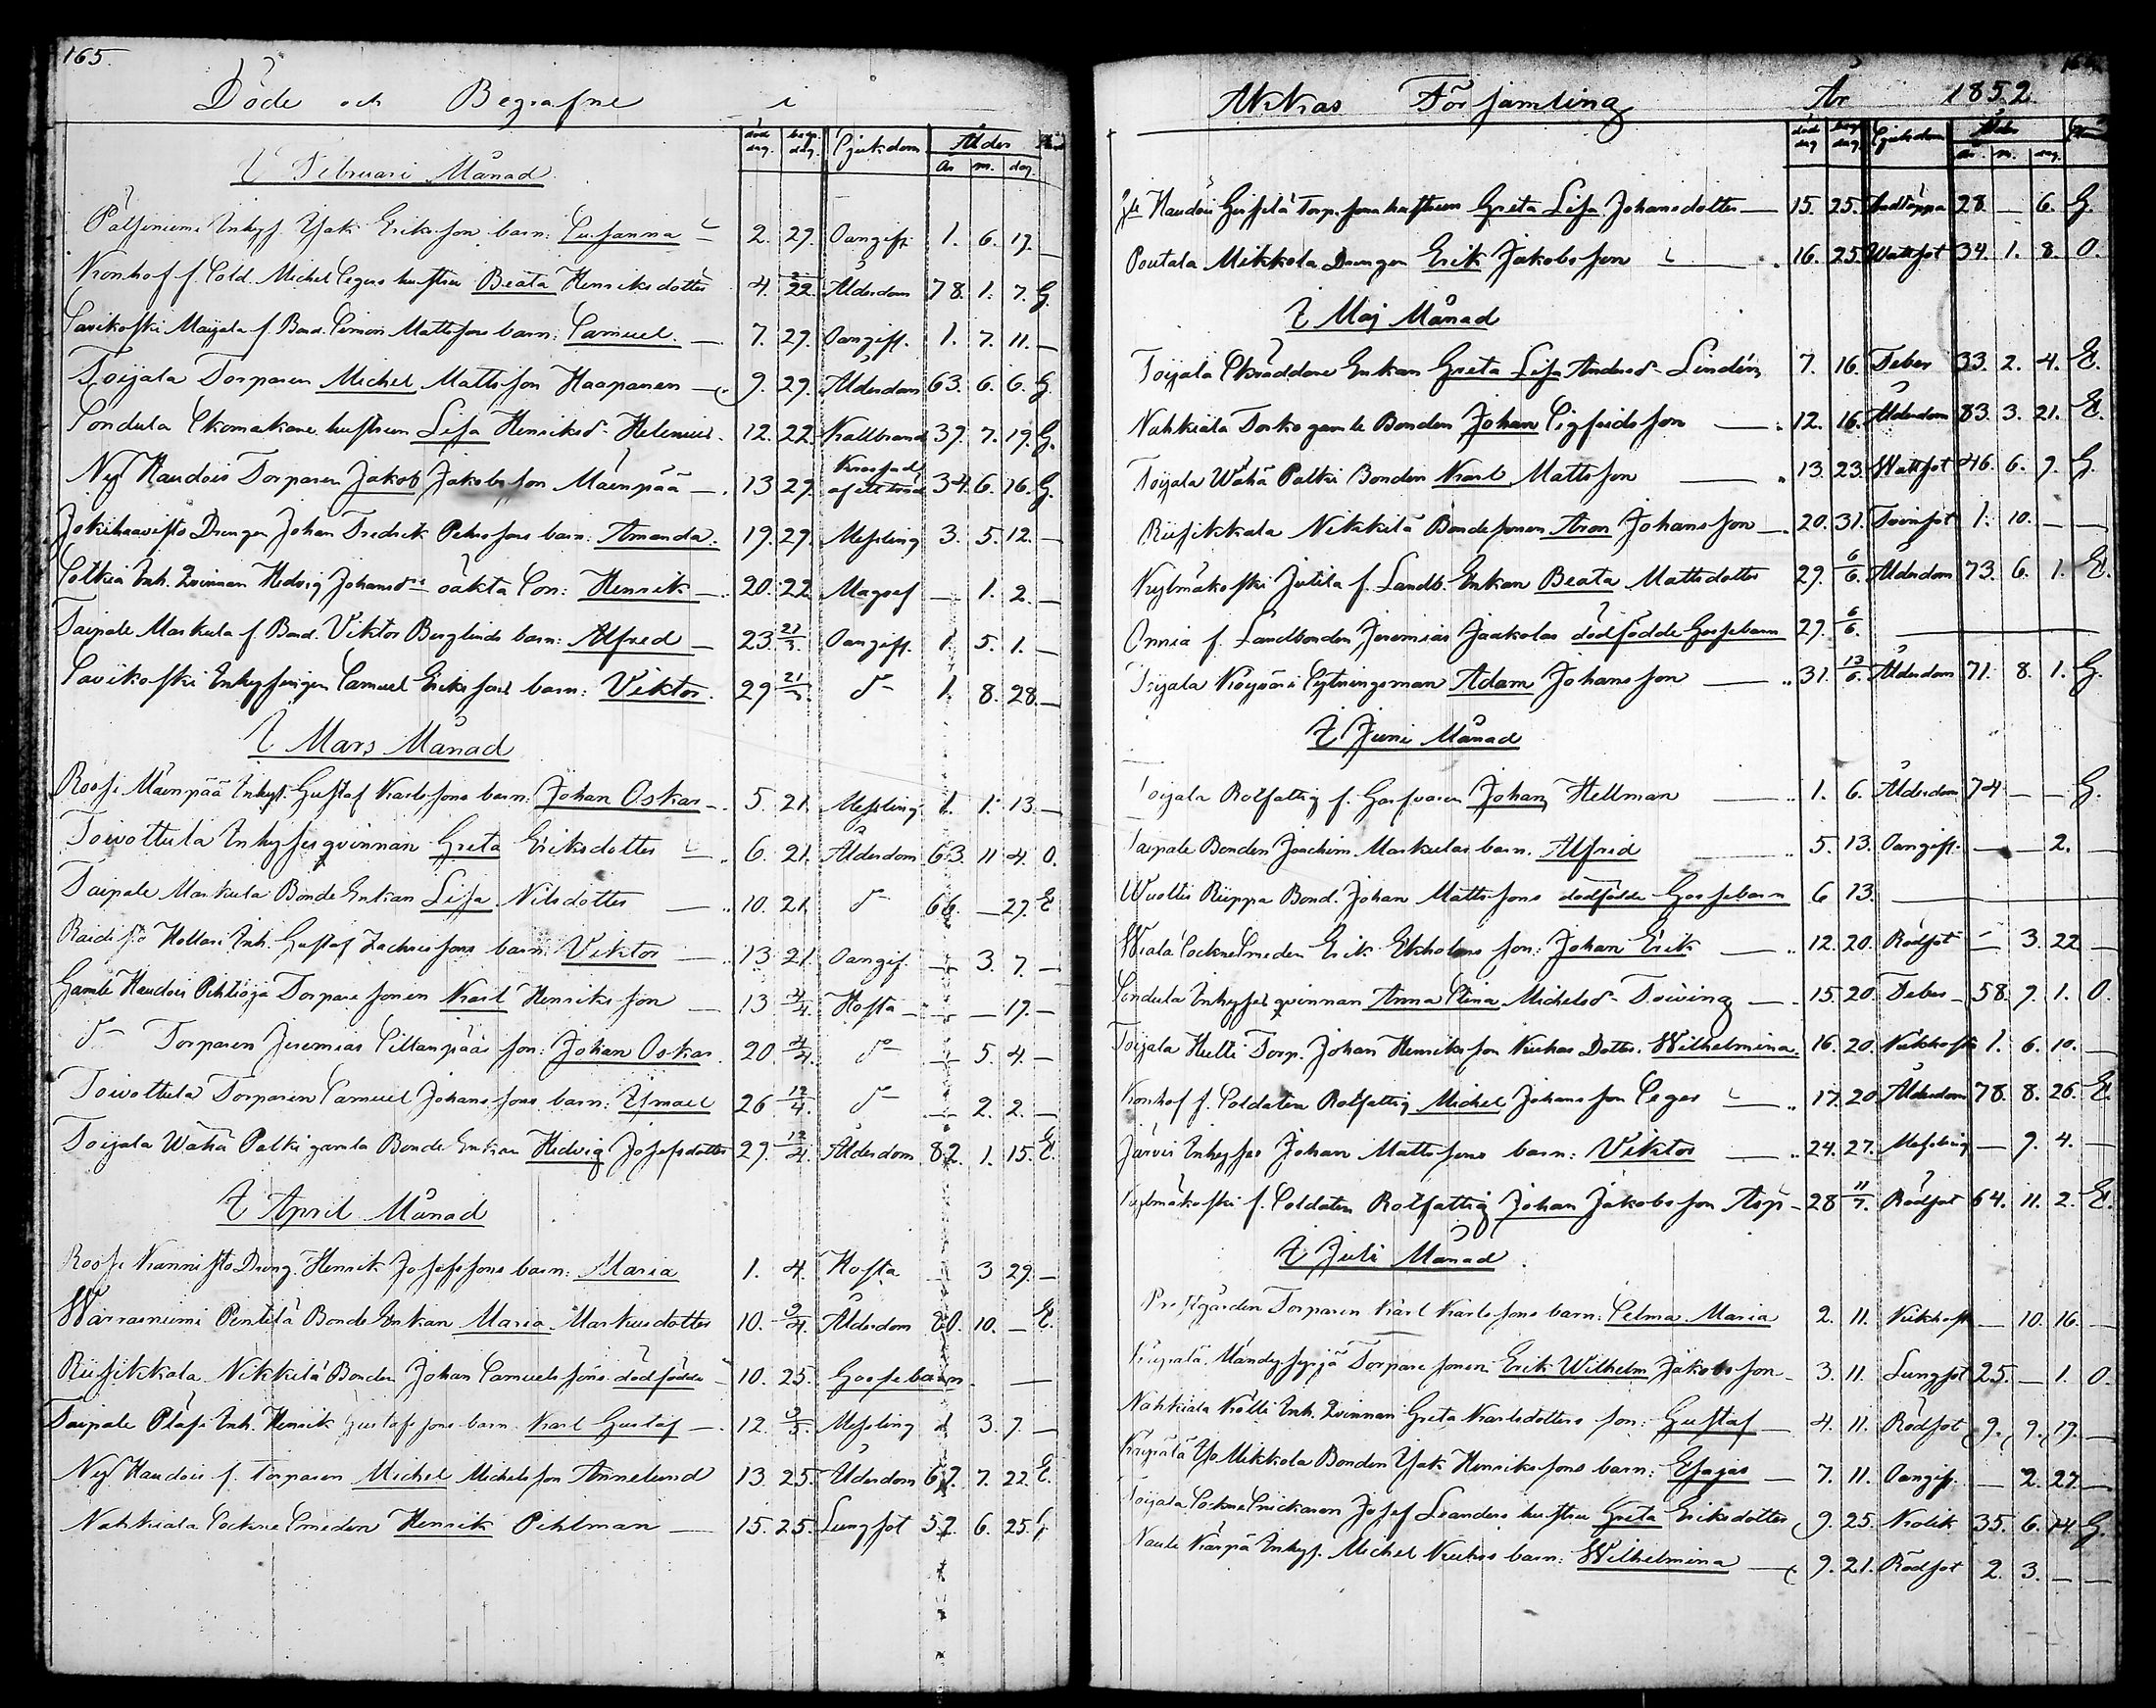 165.
Döde och Begrafne i
död dag. begr. dag. Sjukdom Ålder
år m. dag.
I Februari Månad
Pätsiniemi Inhys. Isak Eriksson barn: Susanna 2. 29. Oangift. 1. 6. 17. —
Kronhof f. Sold. Michel Segers hustru Beata Henriksdotter 4. 22. Ålderdom 78. 1. 7. G.
Savikoski Maijala f. Bond. Simon Mattssons barn: Samuel. — 7. 29. Oangift. 1. 7. 11. —
Toijala Torparen Michel Mattsson Haapanen — 9. 29. Ålderdom 63. 6. 6. G.
Sondula Skomakare hustrun Lisa Henriksdr Helenius. 12. 22. Kallbrand 37. 7. 19. G.
Ny Haudois Torparen Jakob Jakobsson Mäenpää — 13 29. 34. 6. 16. G.
Jokihaavisto Drengen Johan Fredrik Pehrssons barn: Amanda. 19. 29. Messling 3. 5. 12. —
Sotkia Inh. Qvinnan Hedvig Johansdrs oäkta Son: Henrik — 20. 22. Magref — 1. 2. —
Taipale Markula f. Bond. Viktor Berglinds barn: Alfred — 23. 21/3. Oangift. 1. 5. 1. —
Savikoski Inhysingen Samuel Erikssons barn: Viktor. 29. 21/3. d:o 1. 8. 28. —
I Mars Månad
Roosi Mäenpää Inhys. Gustaf Karlssons barn: Johan Oskar — 5. 21. Messling 1. 1. 13. —
Toivottula Inhyses qvinnan Greta Eriksdotter 6. 21. Ålderdom 63. 11 4. O.
Taipale Markula Bonde Enkan Lisa Nilsdotter — 10. 21. d:o 66. — 27. E
Raidisto Hollari Inh. Gustaf Zachrissons barn: Viktor — 13 21. Oangif. — 3. 7. —
Gamle Haudois Pihlioja Torpare sonen Karl Henriksson — 13 4/4. Hosta — — — 17. —
d:o Torparen Jeremias Sillanpääs son: Johan Oskar. 20 4/4. d:o — 5. 4. —
Toivottula Torparen Samuel Johanssons barn: Ismael 26 12/4. d:o — 2. 2. —
Toijala Wähä Palki gamla Bonde Enkan Hedvig Josefsdotter 27. 12/4. Ålderdom 82. 1. 15. E.
I April Månad
Roosi Kannisto Dreng. Henrik Josefssons barn: Maria 1. 4. Hosta — 3 29. —
Warrasniemi Pentilä Bonde Enkan Maria Markusdotter 10. Ålderdom 80. 10. — E.
Riisikkala Nikkilä Bonden Johan Samuelssons dödfödde 10. 25. Gossebarn. —
Taipale Inh. Henrik Gustafssons barn. Karl Gustaf — 12. Messling 1 3. 7. —
Ny Haudois f. Torparen Michel Michelsson Annelund 13. 25. Ålderdom 67. 7. 22. E.
Nahkiala Sockne Smeden Henrik Pihlman — 15. 25. Lungsot 57. 6. 25. G.
Akkas Församling År 1852.
död dag begr. dag. Sjukdom Ålder
år. m. dag.
Haudois Torp. sons hustrun Greta Lisa Johansdotter — 15. 25. 28. — 6. G.
Poutala Mikkola Drengen Erik Jakobsson — 16. 25. Wattsot 34. 1. 8. O.
I Maj Månad
Toijala Skräddare Enkan Greta Lisa Andersdr Lindén 7. 16. Feber 33. 2. 4. E.
Nahkiala Torko gamle Bonden Johan Sigfridsson — 12. 16. Ålderdom 83. 3. 21. E.
Toijala Wähä Palki Bonden Karl Mattsson — 13. 23. Wattsot 46. 6. 9. G.
Riisikkala Nikkilä Bondesonen Aron Johansson — 20. 31. Tvinsot 1. 10. — —
Kylmäkoski Jutila f. Landb. Enkan Beata Mattsdotter 29. 6/6. Ålderdom 73. 6. 1. E.
Onnia f. Landbonden Jeremias Jaakolas dödfödde Gossebarn 29. 6/6. —
Toijala Sytningsman Adam Johansson — 31. 13/6. Ålderdom 71. 8. 1. G.
I Juni Månad
Toijala Rotfattig f. Garfvaren Johan Hellman — 1. 6. Ålderdom 74 — — G.
Taipale Bonden Joachim Markulas barn. Alfrid 5. 13. Oangift. — — 2. —
Wuolles Riippa Bond. Johan Mattssons dödfödde Gossebarn 6 13. —
Wiala Sockne Smeden Erik Ekholms son: Johan Erik — 12. 20. Rödsot — 3. 22 —
Sondula Inhyses qvinnan Anna Stina Michelsdr Toiving — 15. 20. Feber — 58. 9. 1. O.
Toijala Hulli Torp. Johan Henriksson Kukas Dotter. Wilhelmina. 16. 20. Kikhosta 1. 6. 10. —
Kronhof f. Soldaten Rotfattig Michel Johansson Seger — 17. 20. Ålderdom 78. 8. 26. E.
Järvis Inhyses Johan Mattssons barn: Viktor — 24. 27. Messling — 9. 4. —
Kylmäkoski f. Soldaten Rotfattig Johan Jakobsson Asp — 28 11/7. Rödsot 64. 11. 2. E.
I Juli Månad
Prestgården Torparen Karl Karlssons barn: Selma Maria 2. 11. Kikhost — 10. 16. —
Torpare sonen Erik Wilhelm Jakobsson — 3. 11. Lungsot 25. — 1. O.
Nahkiala Kölli Inh. Qvinnan Greta Karlsdotters son: Gustaf — 4. 11. Rödsot 9. 9. 19. —
Yso Mikkola Bonden Isak Henrikssons barn: Esajas — 7. 11. Oangift. — 2. 27. —
Toijala Sockne Snickaren Josef Leanders hustru Greta Eriksdotter 9. 25. Kolik 35. 6. 14. G.
Kärpä Inhys. Michel Kukos barn: Wilhelmina — 9. 21. Rödsot 2. 3. — —